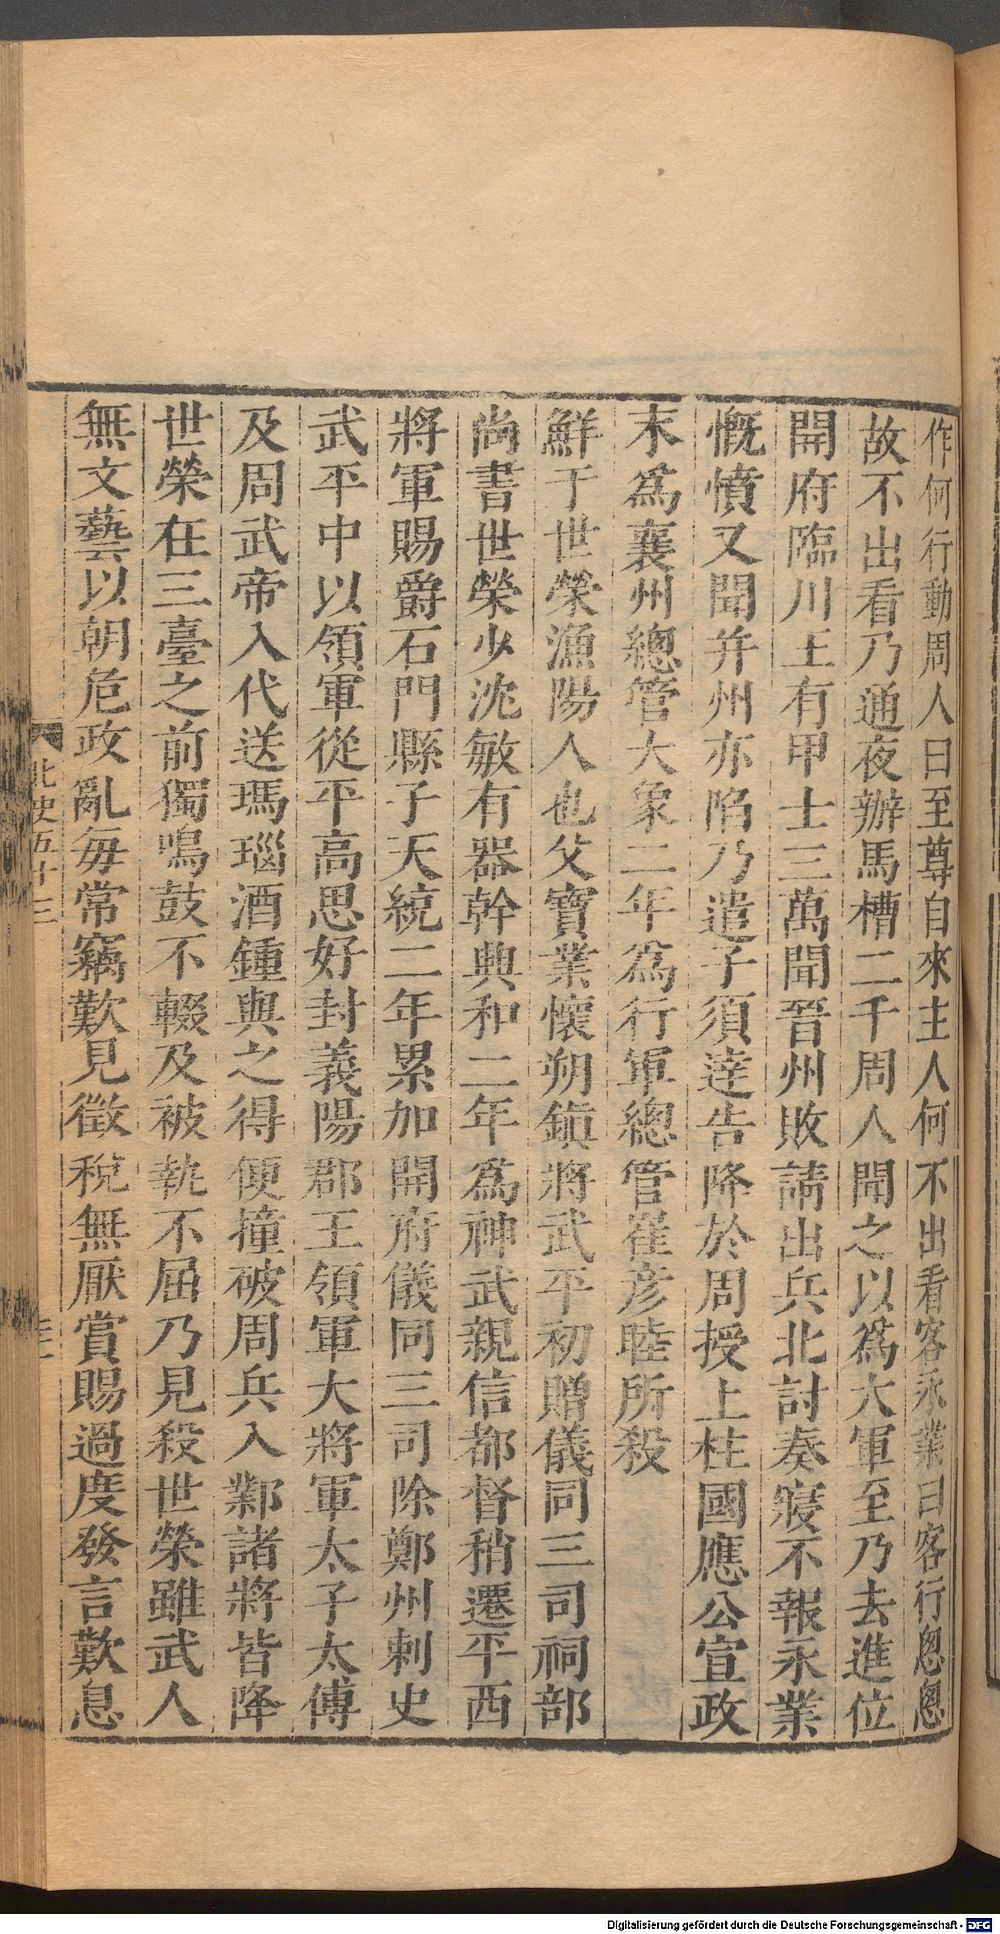 作何行動周人曰至尊自來主人何不出看客永業曰客行悤悤
故不出看乃通夜辦馬槽二千周人聞之以爲大軍至乃去進位
開府臨川王有甲士三萬聞晉州敗請出兵北討奏寢不報永業
慨憤又聞并州亦陷乃遣子須逹告降於周授上柱國應公宣政
末爲襄州總管大象二年爲行軍總管崔彦睦所殺
鮮于世榮漁陽人也父寶業懷朔鎮將武平初贈儀同三司祠部
尚書世榮少沈敏有器幹興和二年爲神武親信都督稍遷平西
將軍賜爵石門縣子天統二年累加開府儀同三司除鄭州刺史
武平中以領軍從平高思好封義陽郡王領軍大將軍太子太傅
及周武帝入代送瑪瑙酒鍾與之得便撞破周兵入鄴諸將皆降
世榮在三臺之前獨鳴鼓不輟及被執不屈乃見殺世榮雖武人
無文藝以朝危政亂毎常竊歎見徵稅無厭賞賜過度發言歎息
北史五十三
Digitalisierung gefördert durch die Deutsche Forschungsgemeinschaft - DFG